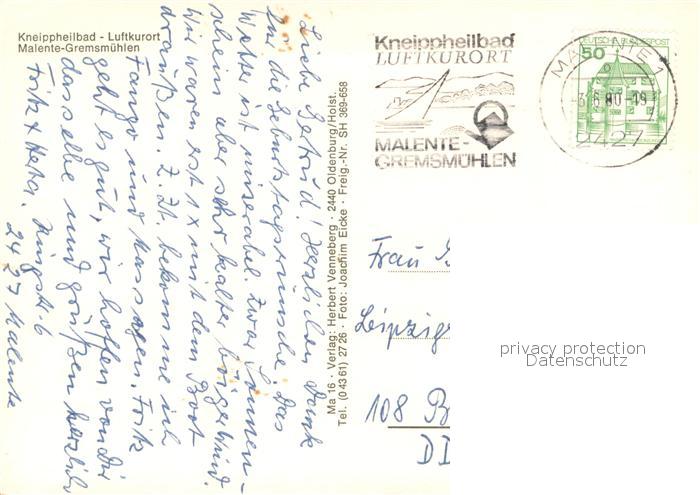 Kneippheilbad - Luftkurort
Malente-Gremsmühlen
Liebe Gertrud! Herzlichen Dank
für die Geburtstagswünsche. Das
Wetter ist miserabel. Zwar Sonnen-
schein aber sehr kalter böiger Wind.
Wir waren erst 1x mit dem Boot
draußen. Z. Zt. bekomme ich
Fango und Massagen. Fritz
geht es gut, wir hoffen von Dir
dasselbe und grüßen herzlich
Fritz + Herta.
2427 Malente
Ma 16 · Verlag: Herbert Venneberg · 2440 Oldenburg/Holst.
Tel. (0 43 61) 27 26 · Foto: Joachim Eicke · Freig.-Nr. SH 369-658
Kneippheilbad
LUFTKURORT
MALENTE-
GREMSMÜHLEN
DEUTSCHE BUNDESPOST
50
MALENTE 1
-3.6.80-19
2427
Frau
Leipzig
108 B
DD
privacy protection
Datenschutz